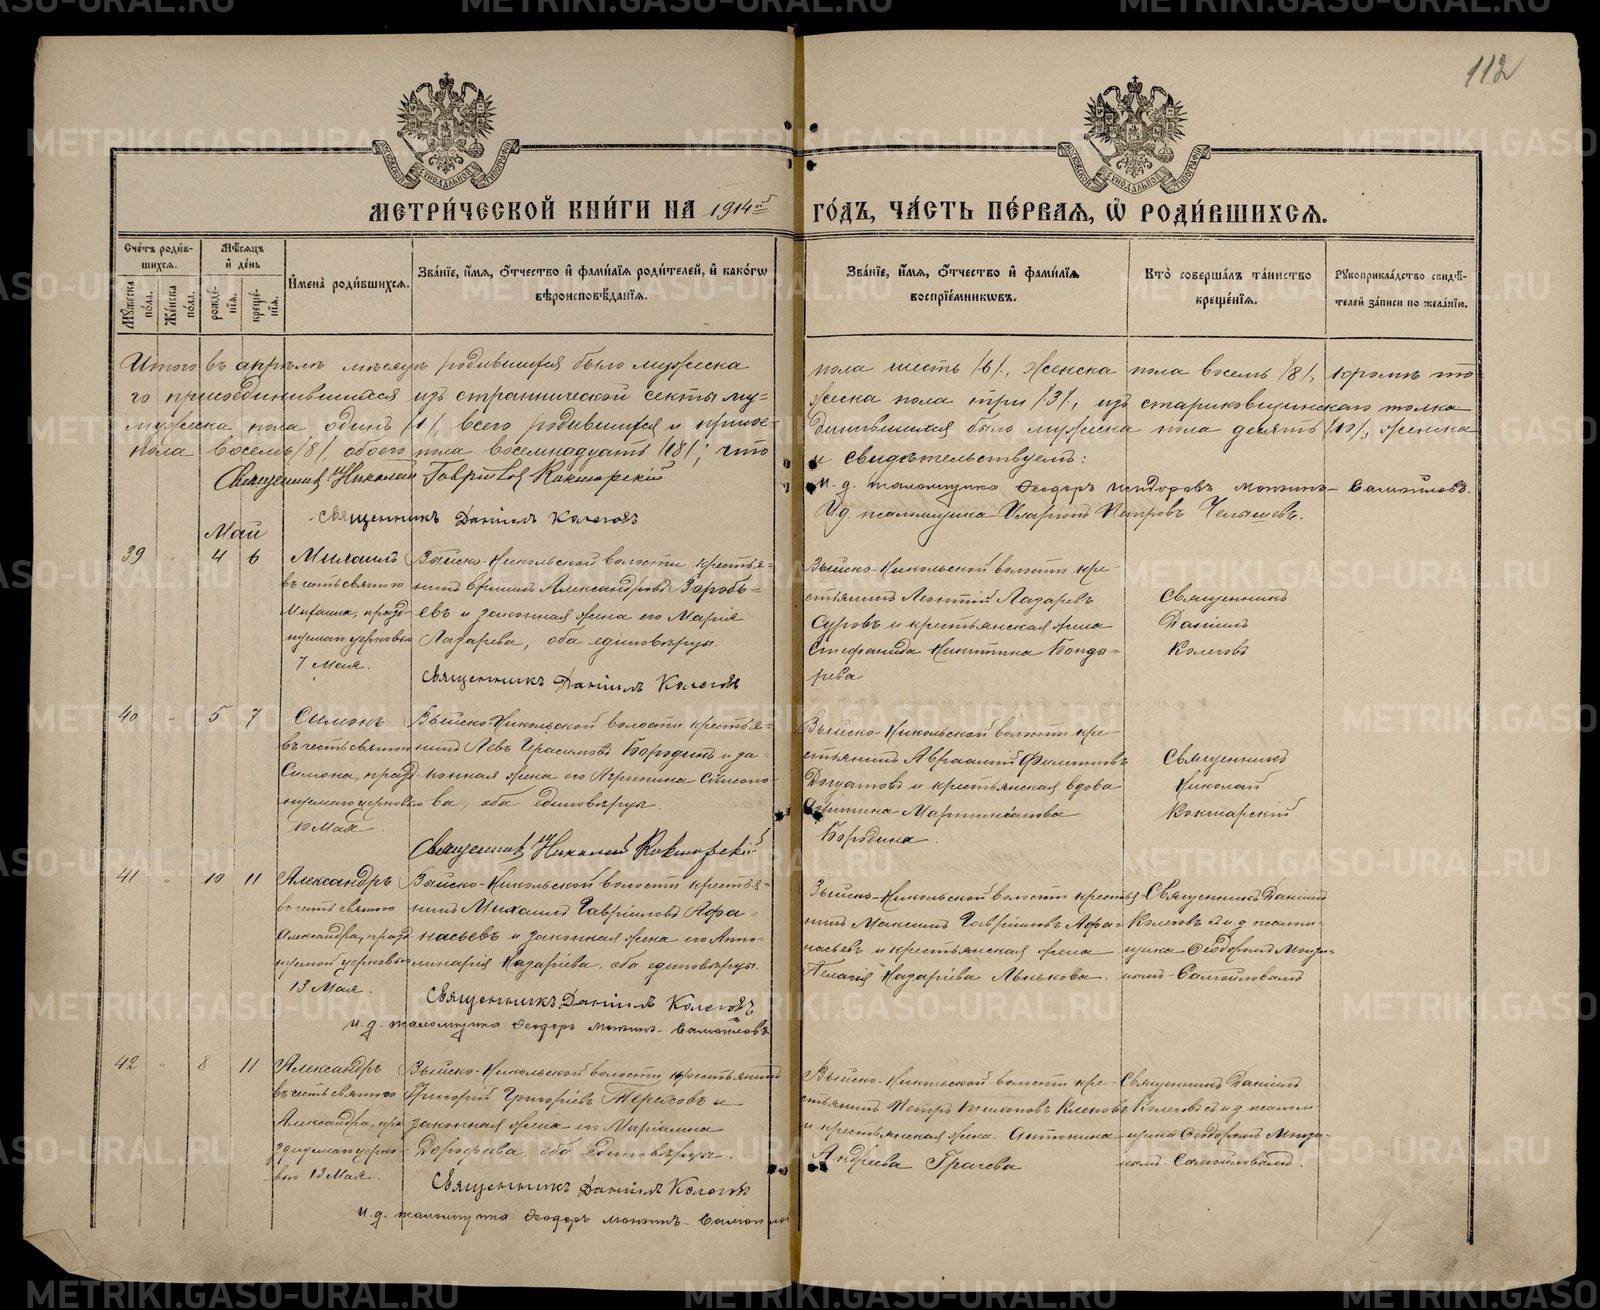 112
МОСКОВСКОЙ СѴНОДАЛЬНОЙ ТИПОГРАФІИ
МОСКОВСКОЙ СѴНОДАЛЬНОЙ ТИПОГРАФІИ
МЕТРИ́ЧЕСКОЙ КНИ́ГИ НА 1914й ГО́ДЪ, ЧА́СТЬ ПЕ́РВАѦ, Ѡ҆ РОДИ́ВШИХСѦ.
Сче́тъ роди́вшихсѧ.
Мꙋ́жеска по́ла.
Же́нска по́ла.
Мѣ́сѧцъ и҆ де́нь
рожде́нїѧ.
креще́нїѧ.
И҆мена̀ роди́вшихсѧ.
Зва́нїе, и҆́мѧ, ѻ҆́тчество и҆ фами́лїѧ роди́телей, и҆ како́гѡ вѣроисповѣ́данїѧ.
Зва́нїе, и҆́мѧ, ѻ҆́тчество и҆ фами́лїѧ воспрїе́мникѡвъ.
Кто̀ соверша́лъ та́инство креще́нїѧ.
Рꙋкоприкла́дство свидѣ́телей за́писи по жела́нїю.
Итого въ апрѣлѣ мѣсяцѣ родившихся было мужеска пола шесть /6/, женска пола восемь /8/, кромѣ то-
го присоединившихся изъ страннической секты му-
жеска пола три /3/, изъ стариковщинскаго толка
мужеска пола одинъ /1/, всего родившихся и присое-
динившихся было мужеска пола десять /10/, женска
пола восемь /8/, обоего пола восемнадцать /18/; что
и свидѣтельствуемъ:
Священник Николай Гаврилов Кокшарскій
Священникъ Даніилъ Колеговъ
И. д. псаломщика Ѳеодоръ Исидоровъ Монзинъ-Самойловъ.
И.д. псаломщика Иларіонъ Петровъ Челышевъ.
Май
39 " 4 6
Михаилъ
въ честь святого
Михаила, празд-
нуемаго церковью
7 Мая.
Выйско-Никольской волости крестья-
нинъ Ефимъ Александровъ
евъ и законная жена его Марія
Лазарева, оба единовѣрцы.
Священникъ Даніилъ Колеговъ
Выйско-Никольской волости кре-
стьянинъ Леонтій Лазаревъ
Суровъ и крестьянская жена
Стефанида Никитина Бонды-
рева
Священникъ
Даніилъ
Колеговъ
40 " 5 7
Симонъ
въ честь святого
Симона, празд-
нуемаго церковью
10 Мая.
Выйско-Никольской волости крестья-
нинъ Левъ Герасимовъ Бородинъ и за-
конная жена его Агрипина Симоно-
ва, оба единовѣрцы.
Священник Николай Кокшарскій
Выйско-Никольской волости кре-
стьянинъ Авраамій Филипповъ
и крестьянская вдова
Бородина.
Священникъ
Николай
Кокшарскій
41 " 10 11
Александръ
въ честь святого
Александра, празд-
нуемой церковью
13 Мая.
Выйско-Никольской волости крестья-
нинъ Михаилъ Гавріиловъ Афа-
насьевъ и законная жена его Аппо-
линарія Назаріева, оба единовѣрцы.
Священникъ Даніилъ Колеговъ
и. д. псаломщика Ѳеодоръ Монзинъ-Самойловъ
Выйско-Никольской волости крестья-
нинъ Максимъ Гавріиловъ Афа-
насьевъ и крестьянская жена
Пелагія Назаріева Лѣнькова.
Священникъ Даніилъ
Колеговъ съ и. д. псалом-
щика Ѳеодоромъ Монзи-
нымъ-Самойловымъ
42 " 8 11
Александръ
въ честь святого
Александра, пра-
зднуемаго церко-
вью 13 Мая.
Выйско-Никольской волости крестьянинъ
Григорій Григорьевъ Тереховъ и
законная жена его Маріамна
Дорофѣева, оба единовѣрцы.
Священникъ Даніилъ Колеговъ
и. д. псаломщика Ѳеодоръ Монзинъ-Самойло
Выйско-Никольской волости кре-
стьянинъ Петръ Тихоновъ Клековъ
и крестьянская жена Антонина
Андреева Грачева
Священникъ Даніилъ
Колеговъ съ и. д. псалом-
щика Ѳеодоромъ Монзи-
нымъ-Самойловымъ.
METRIKI.GASO-URAL.RU